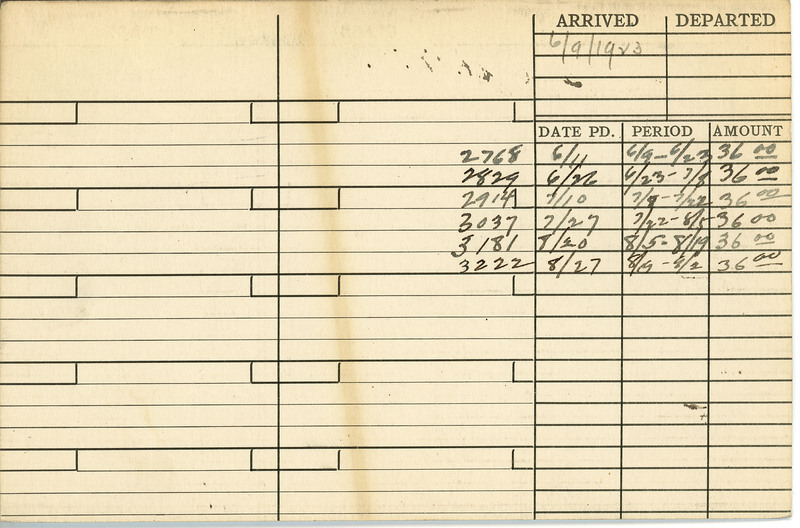 ARRIVED DEPARTED
6/9/1923
DATE PD. PERIOD AMOUNT
2768 6/11 6/9-6/23 36 00
2829 6/26 6/23-7/8 36 00
2914 7/10 7/9-7/22 36 00
3037 7/27 7/22-8/5 36 00
3181 8/20 8/5-8/19 36 00
3222 8/27 36 00